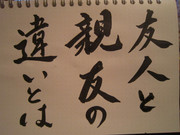 友人と
親友の
違いとは